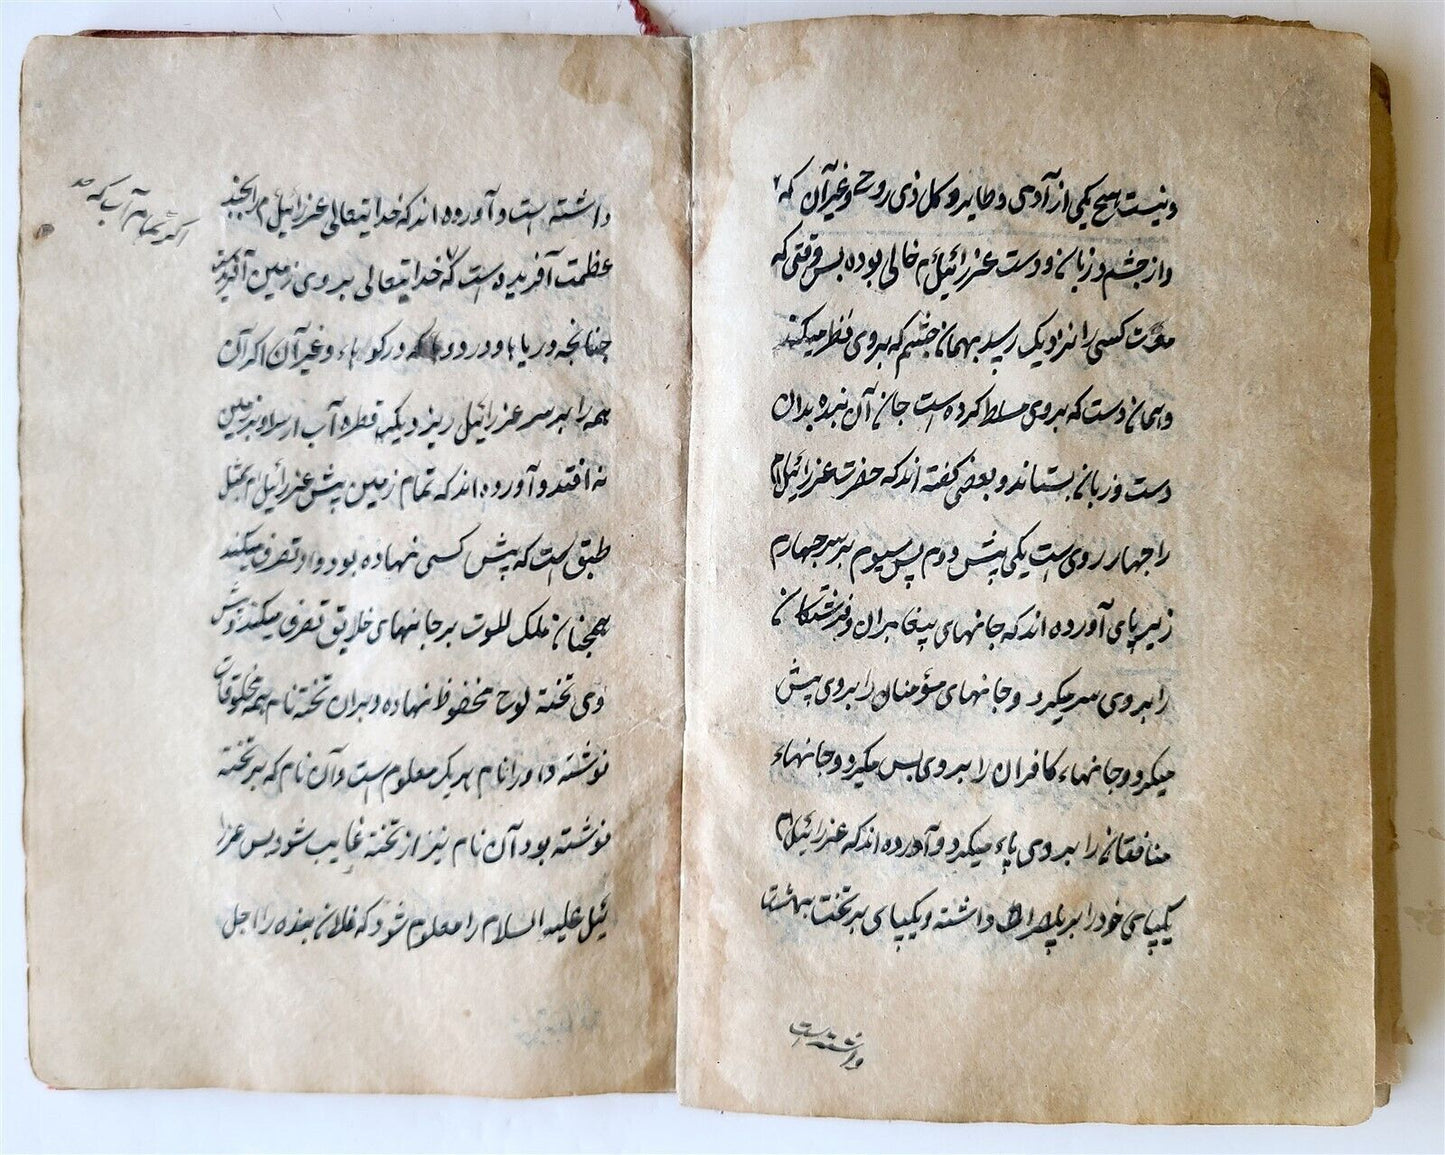 ونیست هیچ یکی از آدمی و طایر و کل ذی روح و غیر آن که
و از چشم و زبان و دست عزرائیل ءم خالی بوده پس وقتی که
موت کسی را نزدیک رسید بهمان چشم که بروی نظر میکند
و همان دست که بروی مسلط کرده است جان آن بنده بدان
دست و زبان بستاند و بعضی گفته اند که حضرت عزرائیل ءم
را چهار روی است یکی پیش دوم پس سیوم بر سر چهارم
زیر پای آورده اند که جانهای پیغامبران و فرشتگان
را بروی سر میگیرد و جانهای مؤمنان را بروی پیش
میگیرد و جانهاء کافران را بروی پس میگیرد و جانهاء
منافقان را بروی پاء میگیرد و آورده اند که عزرائیل ءم
یکپای خود را بر پلصراط داشته و یکپای بر تخت بهشت
داشته است
داشته است و آورده اند که خدایتعالی عزرائیل ءم را بچند
عظمت آفریده است که خدایتعالی بر روی زمین آفریده
چنانچه دریاها و در رود که در کوهاء و غیر آن اگر آن
همه را بر سر عزرائیل ریزد یک قطره آب از سر او بر زمین
نه افتد و آورده اند که تمام زمین پیش عزرائیل ءم بمثل
طبق است که پیش کسی نهاده بود و او تصرف میکند
همچنان ملک الموت بر جانهای خلایق تصرف میکند و پیش
وی تخته لوح محفوظ نهاده و بران تخته نام همه مخلوقات
نوشته و او را نام هر یک معلوم است و آن نام که بر تخته
نوشته بود آن نام نیز از تخته غایب شود پس عزرا
ئیل علیه السلام را معلوم شود که فلان بنده را اجل
اگر تمام آب که